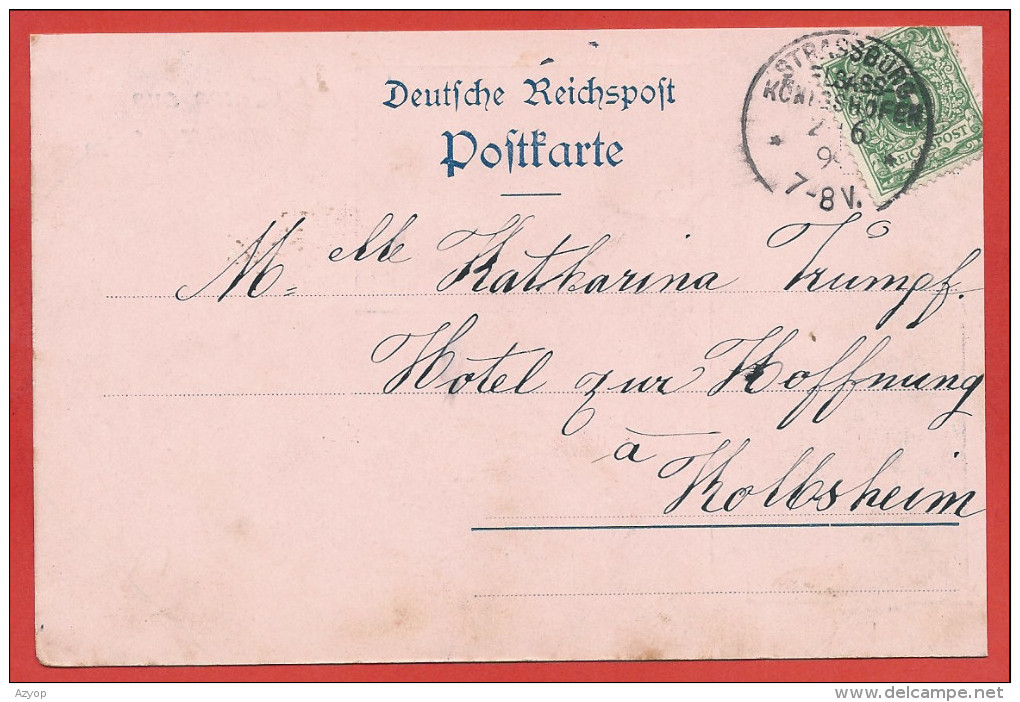 Deutsche Reichspost
Postkarte
STRASSBURG
ELSASS
KÖNIGSHOFEN
7-8 V.
REICHSPOST
Mlle Katharina Trumpf.
Hotel zur Hoffnung
à
Kolbsheim
Azyop
www.delcampe.net